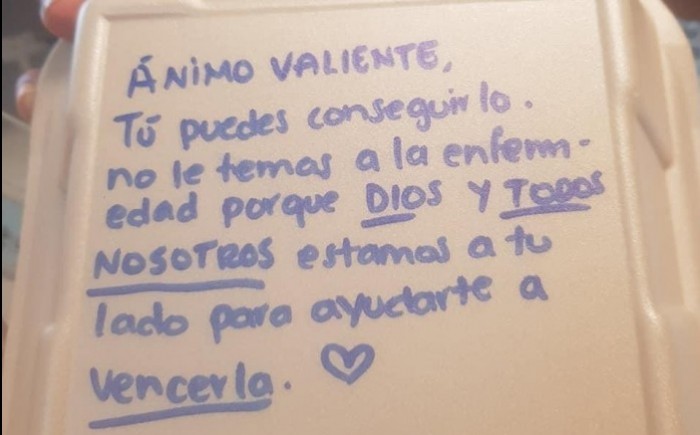 ÁNIMO VALIENTE,
Tú puedes conseguirlo.
no le temas a la enferm-
edad porque DIOS Y TODOS
NOSOTROS estamos a tu
lado para ayudarte a
vencerla. ♡